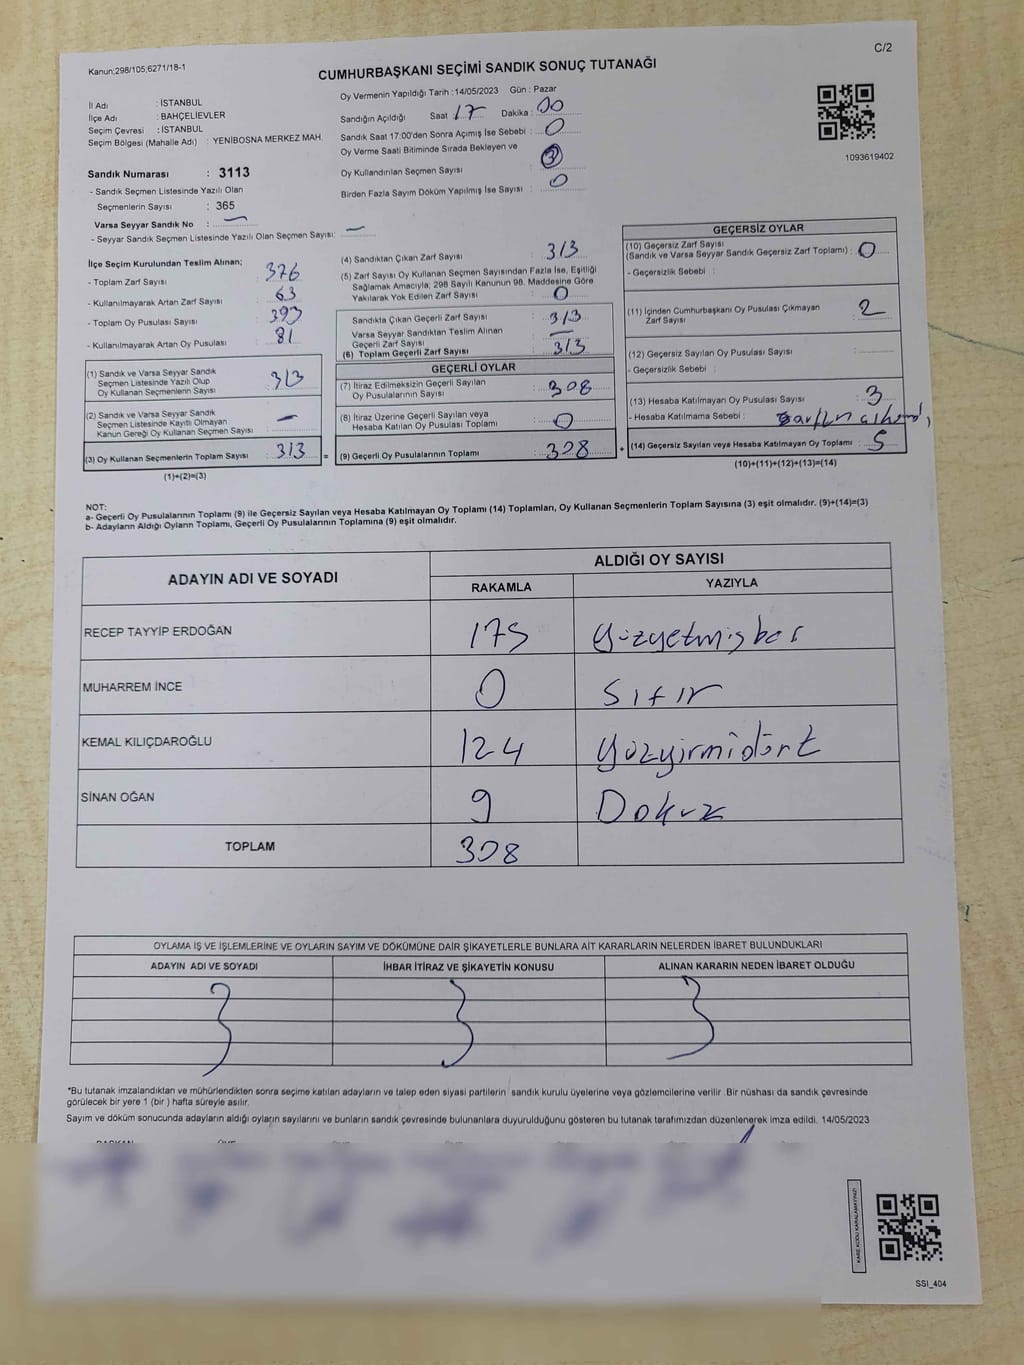 C/2
Kanun;298/105;6271/18-1
CUMHURBAŞKANI SEÇİMİ SANDIK SONUÇ TUTANAĞI
İl Adı : İSTANBUL
İlçe Adı : BAHÇELİEVLER
Seçim Çevresi : İSTANBUL
Seçim Bölgesi (Mahalle Adı) : YENİBOSNA MERKEZ MAH.
Sandık Numarası : 3113
- Sandık Seçmen Listesinde Yazılı Olan
Seçmenlerin Sayısı : 365
Varsa Seyyar Sandık No : —
- Seyyar Sandık Seçmen Listesinde Yazılı Olan Seçmen Sayısı: —
Oy Vermenin Yapıldığı Tarih :14/05/2023 Gün : Pazar
Sandığın Açıldığı Saat : 17 Dakika : 00
Sandık Saat 17:00'den Sonra Açımış İse Sebebi : 0
Oy Verme Saati Bitiminde Sırada Bekleyen ve
Oy Kullandırılan Seçmen Sayısı : 3
Birden Fazla Sayım Döküm Yapılmış İse Sayısı : 0
1093619402
İlçe Seçim Kurulundan Teslim Alınan;
- Toplam Zarf Sayısı : 376
- Kullanılmayarak Artan Zarf Sayısı : 63
- Toplam Oy Pusulası Sayısı : 393
- Kullanılmayarak Artan Oy Pusulası : 81
(1) Sandık ve Varsa Seyyar Sandık
Seçmen Listesinde Yazılı Olup
Oy Kullanan Seçmenlerin Sayısı : 313
(2) Sandık ve Varsa Seyyar Sandık
Seçmen Listesinde Kayıtlı Olmayan
Kanun Gereği Oy Kullanan Seçmen Sayısı : —
(3) Oy Kullanan Seçmenlerin Toplam Sayısı : 313
(1)+(2)=(3)
(4) Sandıktan Çıkan Zarf Sayısı : 313
(5) Zarf Sayısı Oy Kullanan Seçmen Sayısından Fazla İse, Eşitliği
Sağlamak Amacıyla; 298 Sayılı Kanunun 98. Maddesine Göre
Yakılarak Yok Edilen Zarf Sayısı : 0
Sandıkta Çıkan Geçerli Zarf Sayısı : 313
Varsa Seyyar Sandıktan Teslim Alınan
Geçerli Zarf Sayısı : —
(6) Toplam Geçerli Zarf Sayısı : 313
GEÇERLİ OYLAR
(7) İtiraz Edilmeksizin Geçerli Sayılan
Oy Pusulalarının Sayısı : 308
(8) İtiraz Üzerine Geçerli Sayılan veya
Hesaba Katılan Oy Pusulası Toplamı : 0
= (9) Geçerli Oy Pusulalarının Toplamı : 308
GEÇERSİZ OYLAR
(10) Geçersiz Zarf Sayısı
(Sandık ve Varsa Seyyar Sandık Geçersiz Zarf Toplamı) : 0
- Geçersizlik Sebebi :
(11) İçinden Cumhurbaşkanı Oy Pusulası Çıkmayan
Zarf Sayısı : 2
(12) Geçersiz Sayılan Oy Pusulası Sayısı :
- Geçersizlik Sebebi :
(13) Hesaba Katılmayan Oy Pusulası Sayısı : 3
- Hesaba Katılmama Sebebi :
+ (14) Geçersiz Sayılan veya Hesaba Katılmayan Oy Toplamı : 5
(10)+(11)+(12)+(13)=(14)
NOT:
a- Geçerli Oy Pusulalarının Toplamı (9) ile Geçersiz Sayılan veya Hesaba Katılmayan Oy Toplamı (14) Toplamları, Oy Kullanan Seçmenlerin Toplam Sayısına (3) eşit olmalıdır. (9)+(14)=(3)
b- Adayların Aldığı Oyların Toplamı, Geçerli Oy Pusulalarının Toplamına (9) eşit olmalıdır.
ADAYIN ADI VE SOYADI ALDIĞI OY SAYISI
RAKAMLA YAZIYLA
RECEP TAYYİP ERDOĞAN 175 Yüzyetmişbeş
MUHARREM İNCE 0 Sıfır
KEMAL KILIÇDAROĞLU 124 Yüzyirmidört
SİNAN OĞAN 9 Dokuz
TOPLAM 308
OYLAMA İŞ VE İŞLEMLERİNE VE OYLARIN SAYIM VE DÖKÜMÜNE DAİR ŞİKAYETLERLE BUNLARA AİT KARARLARIN NELERDEN İBARET BULUNDUKLARI
ADAYIN ADI VE SOYADI İHBAR İTİRAZ VE ŞİKAYETİN KONUSU ALINAN KARARIN NEDEN İBARET OLDUĞU
*Bu tutanak imzalandıktan ve mühürlendikten sonra seçime katılan adayların ve talep eden siyasi partilerin sandık kurulu üyelerine veya gözlemcilerine verilir. Bir nüshası da sandık çevresinde
görülecek bir yere 1 (bir ) hafta süreyle asılır.
Sayım ve döküm sonucunda adayların aldığı oyların sayılarını ve bunların sandık çevresinde bulunanlara duyurulduğunu gösteren bu tutanak tarafımızdan düzenlenerek imza edildi. 14/05/2023
KARE KODU KARALAMAYINIZ!
SSI_404